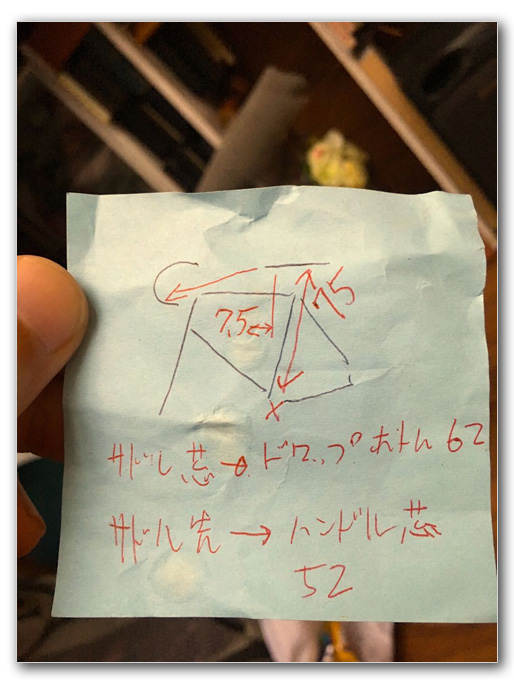 7.5
75
サドル芯→ドロップボトム 62
サドル先→ハンドル芯
52